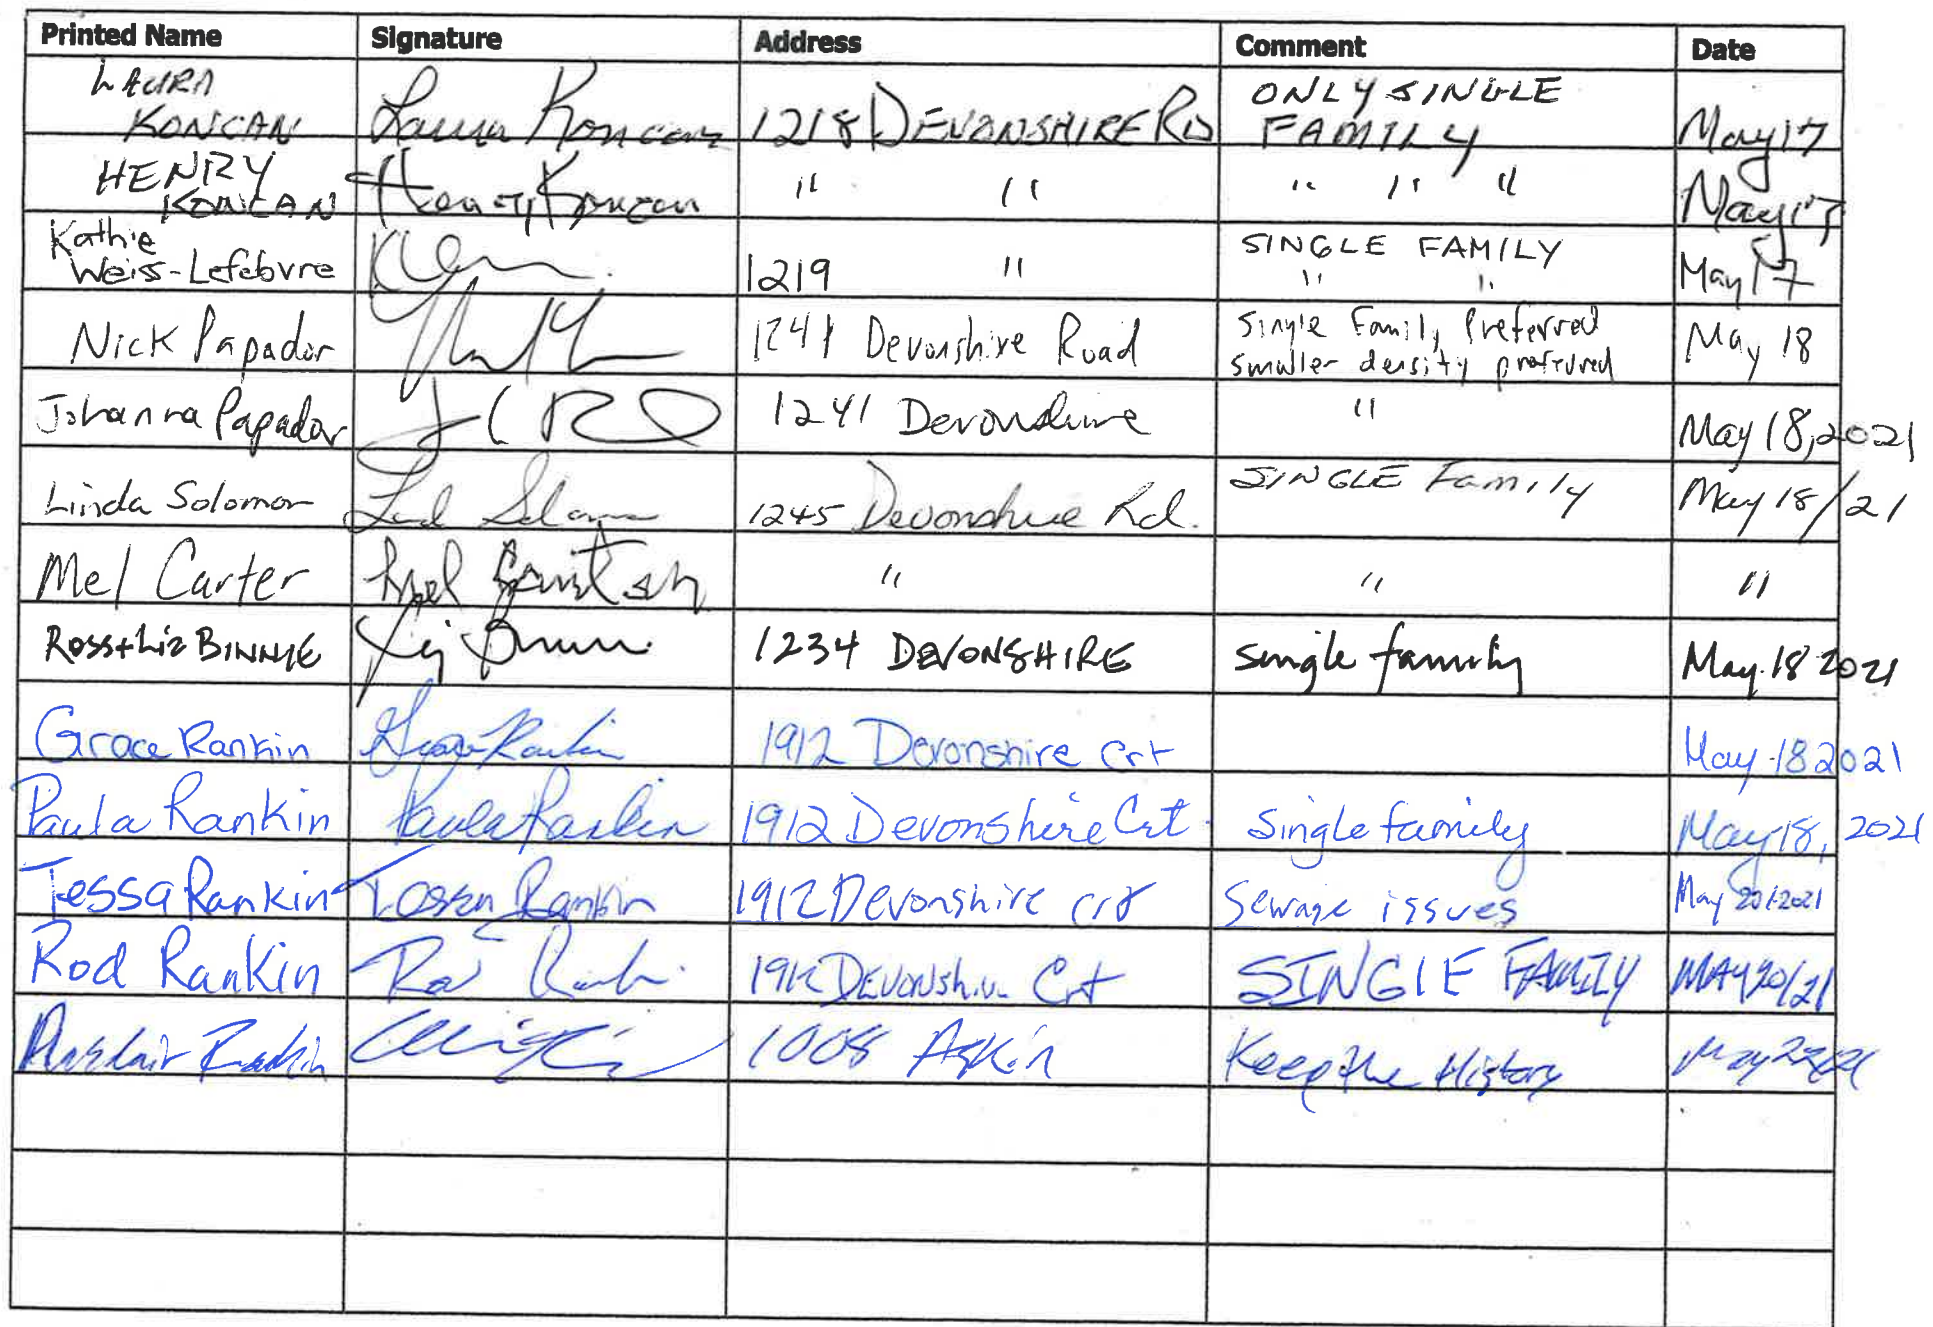 Printed Name Signature Address Comment Date
LAURA KONCAN Laura Koncan 1218 DEVONSHIRE RD ONLY SINGLE FAMILY May 17
HENRY KONCAN Henry Koncan " " " " " May 17
Kathie Weiss-Lefebvre 1219 " SINGLE FAMILY " " May 17
Nick Papador 1241 Devonshire Road Single Family Preferred smaller density preferred May 18
Johanna Papador 1241 Devonshire " May 18, 2021
Linda Solomon 1245 Devonshire Rd. SINGLE Family May 18/21
Mel Carter " " "
Ross + Liz BINNIE 1234 DEVONSHIRE single family May 18 2021
Grace Rankin Grace Rankin 1912 Devonshire Crt May 18 2021
Paula Rankin Paula Rankin 1912 Devonshire Crt. Single family May 18, 2021
Tessa Rankin Tessa Rankin 1912 Devonshire crt Sewage issues May 20/2021
Rod Rankin Rod Rankin 1912 DEVONShire Crt SINGlE FAMILY MAY 20/21
Rankin 1008 Askin Keep the History May